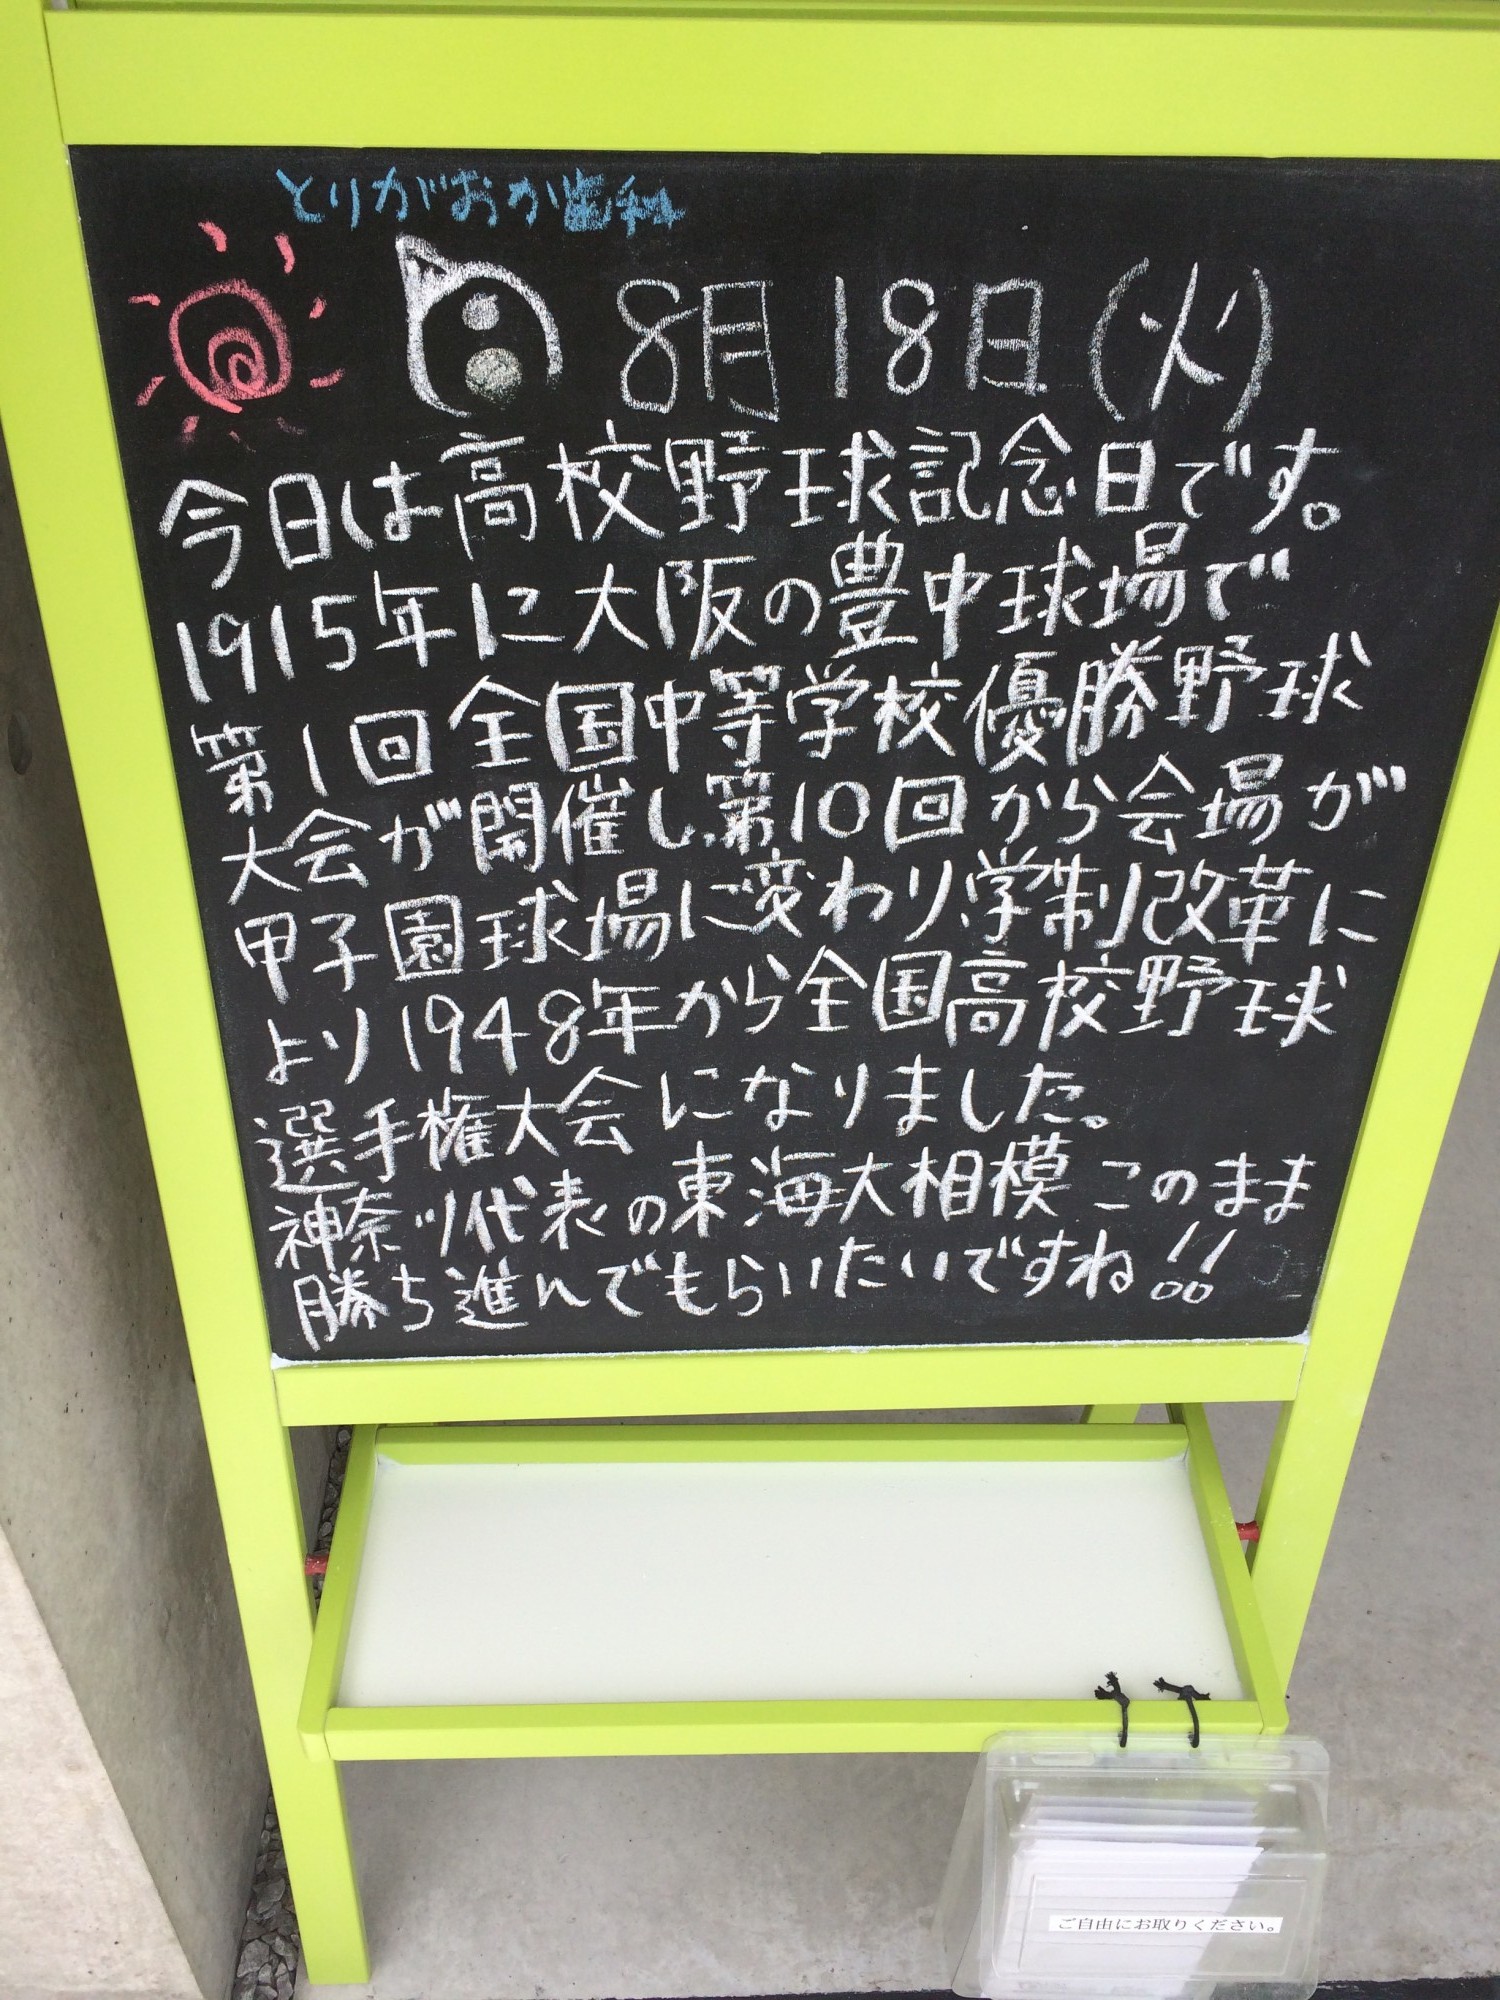 とりがおか歯科
8月18日(火)
今日は高校野球記念日です。
1915年に大阪の豊中球場で
第1回全国中等学校優勝野球
大会が開催し、第10回から会場が
甲子園球場に変わり、学制改革に
より1948年から全国高校野球
選手権大会になりました。
神奈川代表の東海大相模このまま
勝ち進んでもらいたいですね!!
ご自由にお取りください。